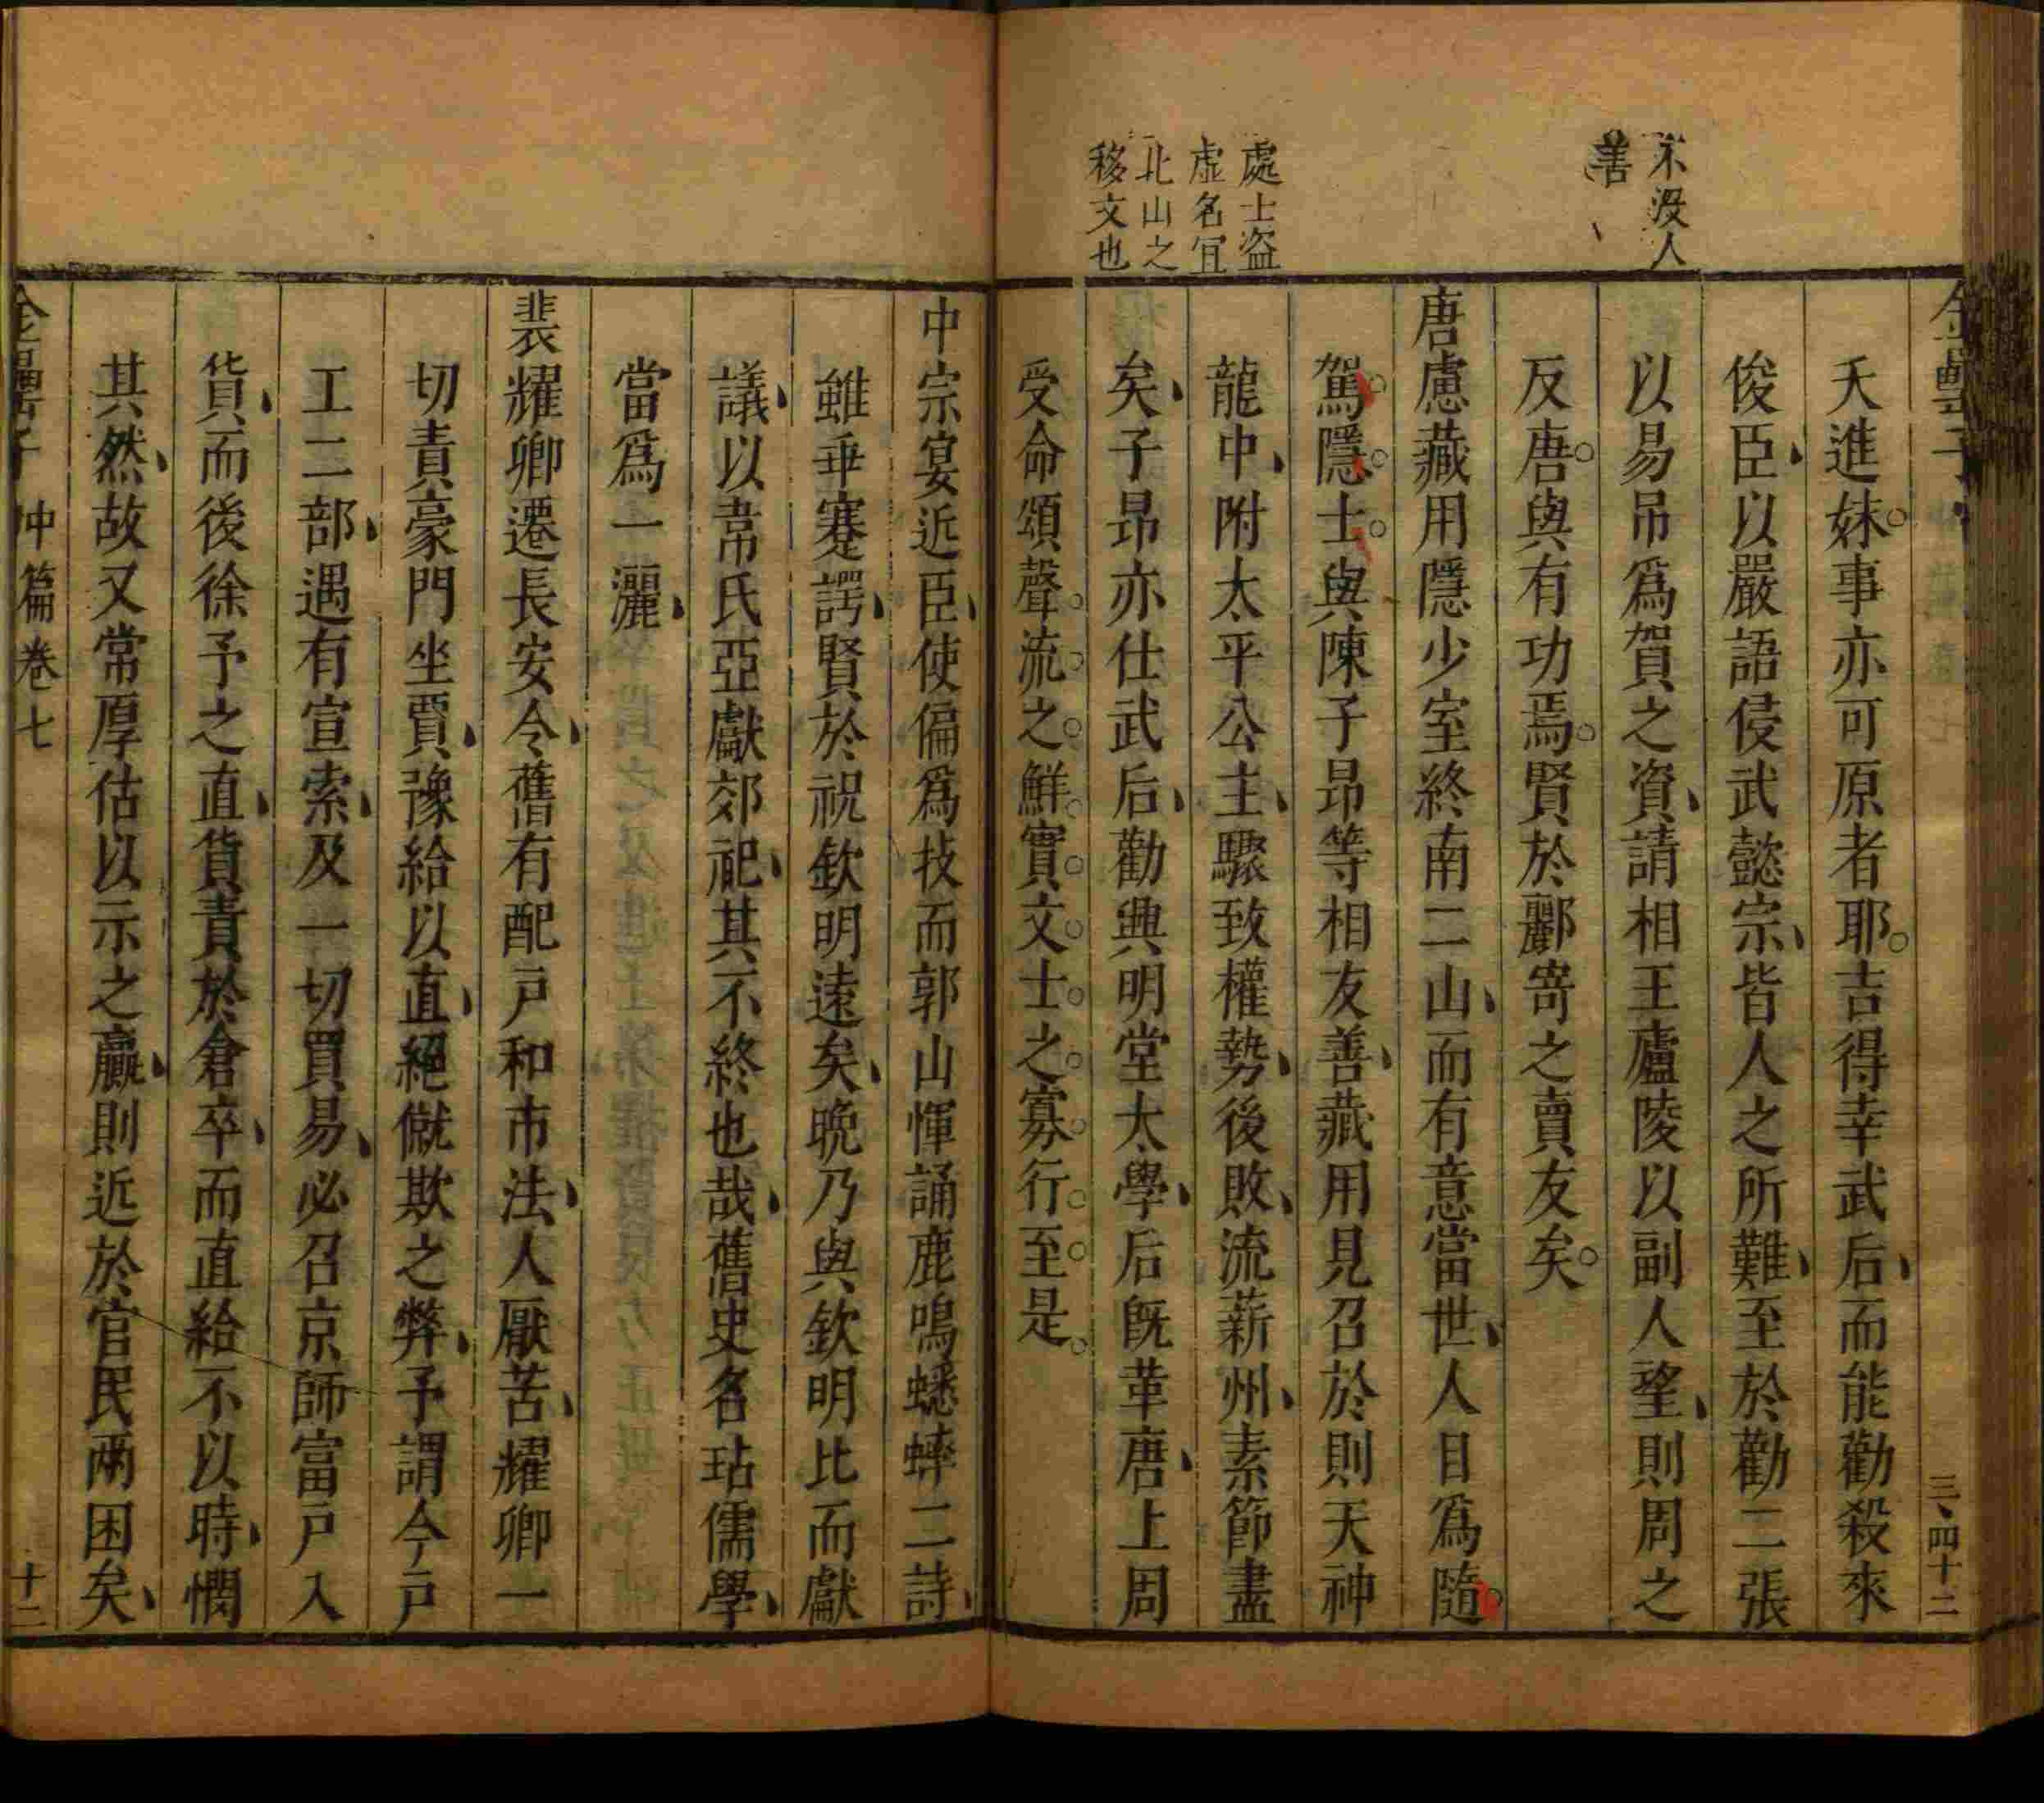 不沒人
善
處士盜
虛名宜
北山之
移文也
金罍子
三、四十二
夭進妹事亦可原者耶吉得幸武后而能勸殺來
俊臣以嚴語侵武懿宗皆人之所難至於勸二張
以易吊爲賀之資請相王廬陵以副人望則周之
反唐與有功焉賢於酈寄之賣友矣
唐慮藏用隱少室終南二山而有意當世人目爲隨
駕隱士與陳子昻等相友善藏用見召於則天神
龍中附太平公主驟致權勢後敗流薪州素節盡
矣子昻亦仕武后勸興明堂太學后旣革唐上周
受命頌聲流之鮮實文士之寡行至是
中宗宴近臣使偏爲技而郭山惲誦鹿鳴蟋蟀二詩
雖乖蹇諤賢於祝欽明遠矣晩乃與欽明比而獻
議以韋氏亞獻郊祀其不終也哉舊史名玷儒學
當爲一灑
裴耀卿遷長安令舊有配戸和市法人厭苦耀卿一
切責豪門坐賈豫給以直絕僦欺之弊予謂今戸
工二部遇有宣索及一切買易必召京師富戸入
貨而後徐予之直貨責於倉卒而直給不以時憫
其然故又常厚估以示之贏則近於官民兩困矣
金罍子 中篇卷七 十二